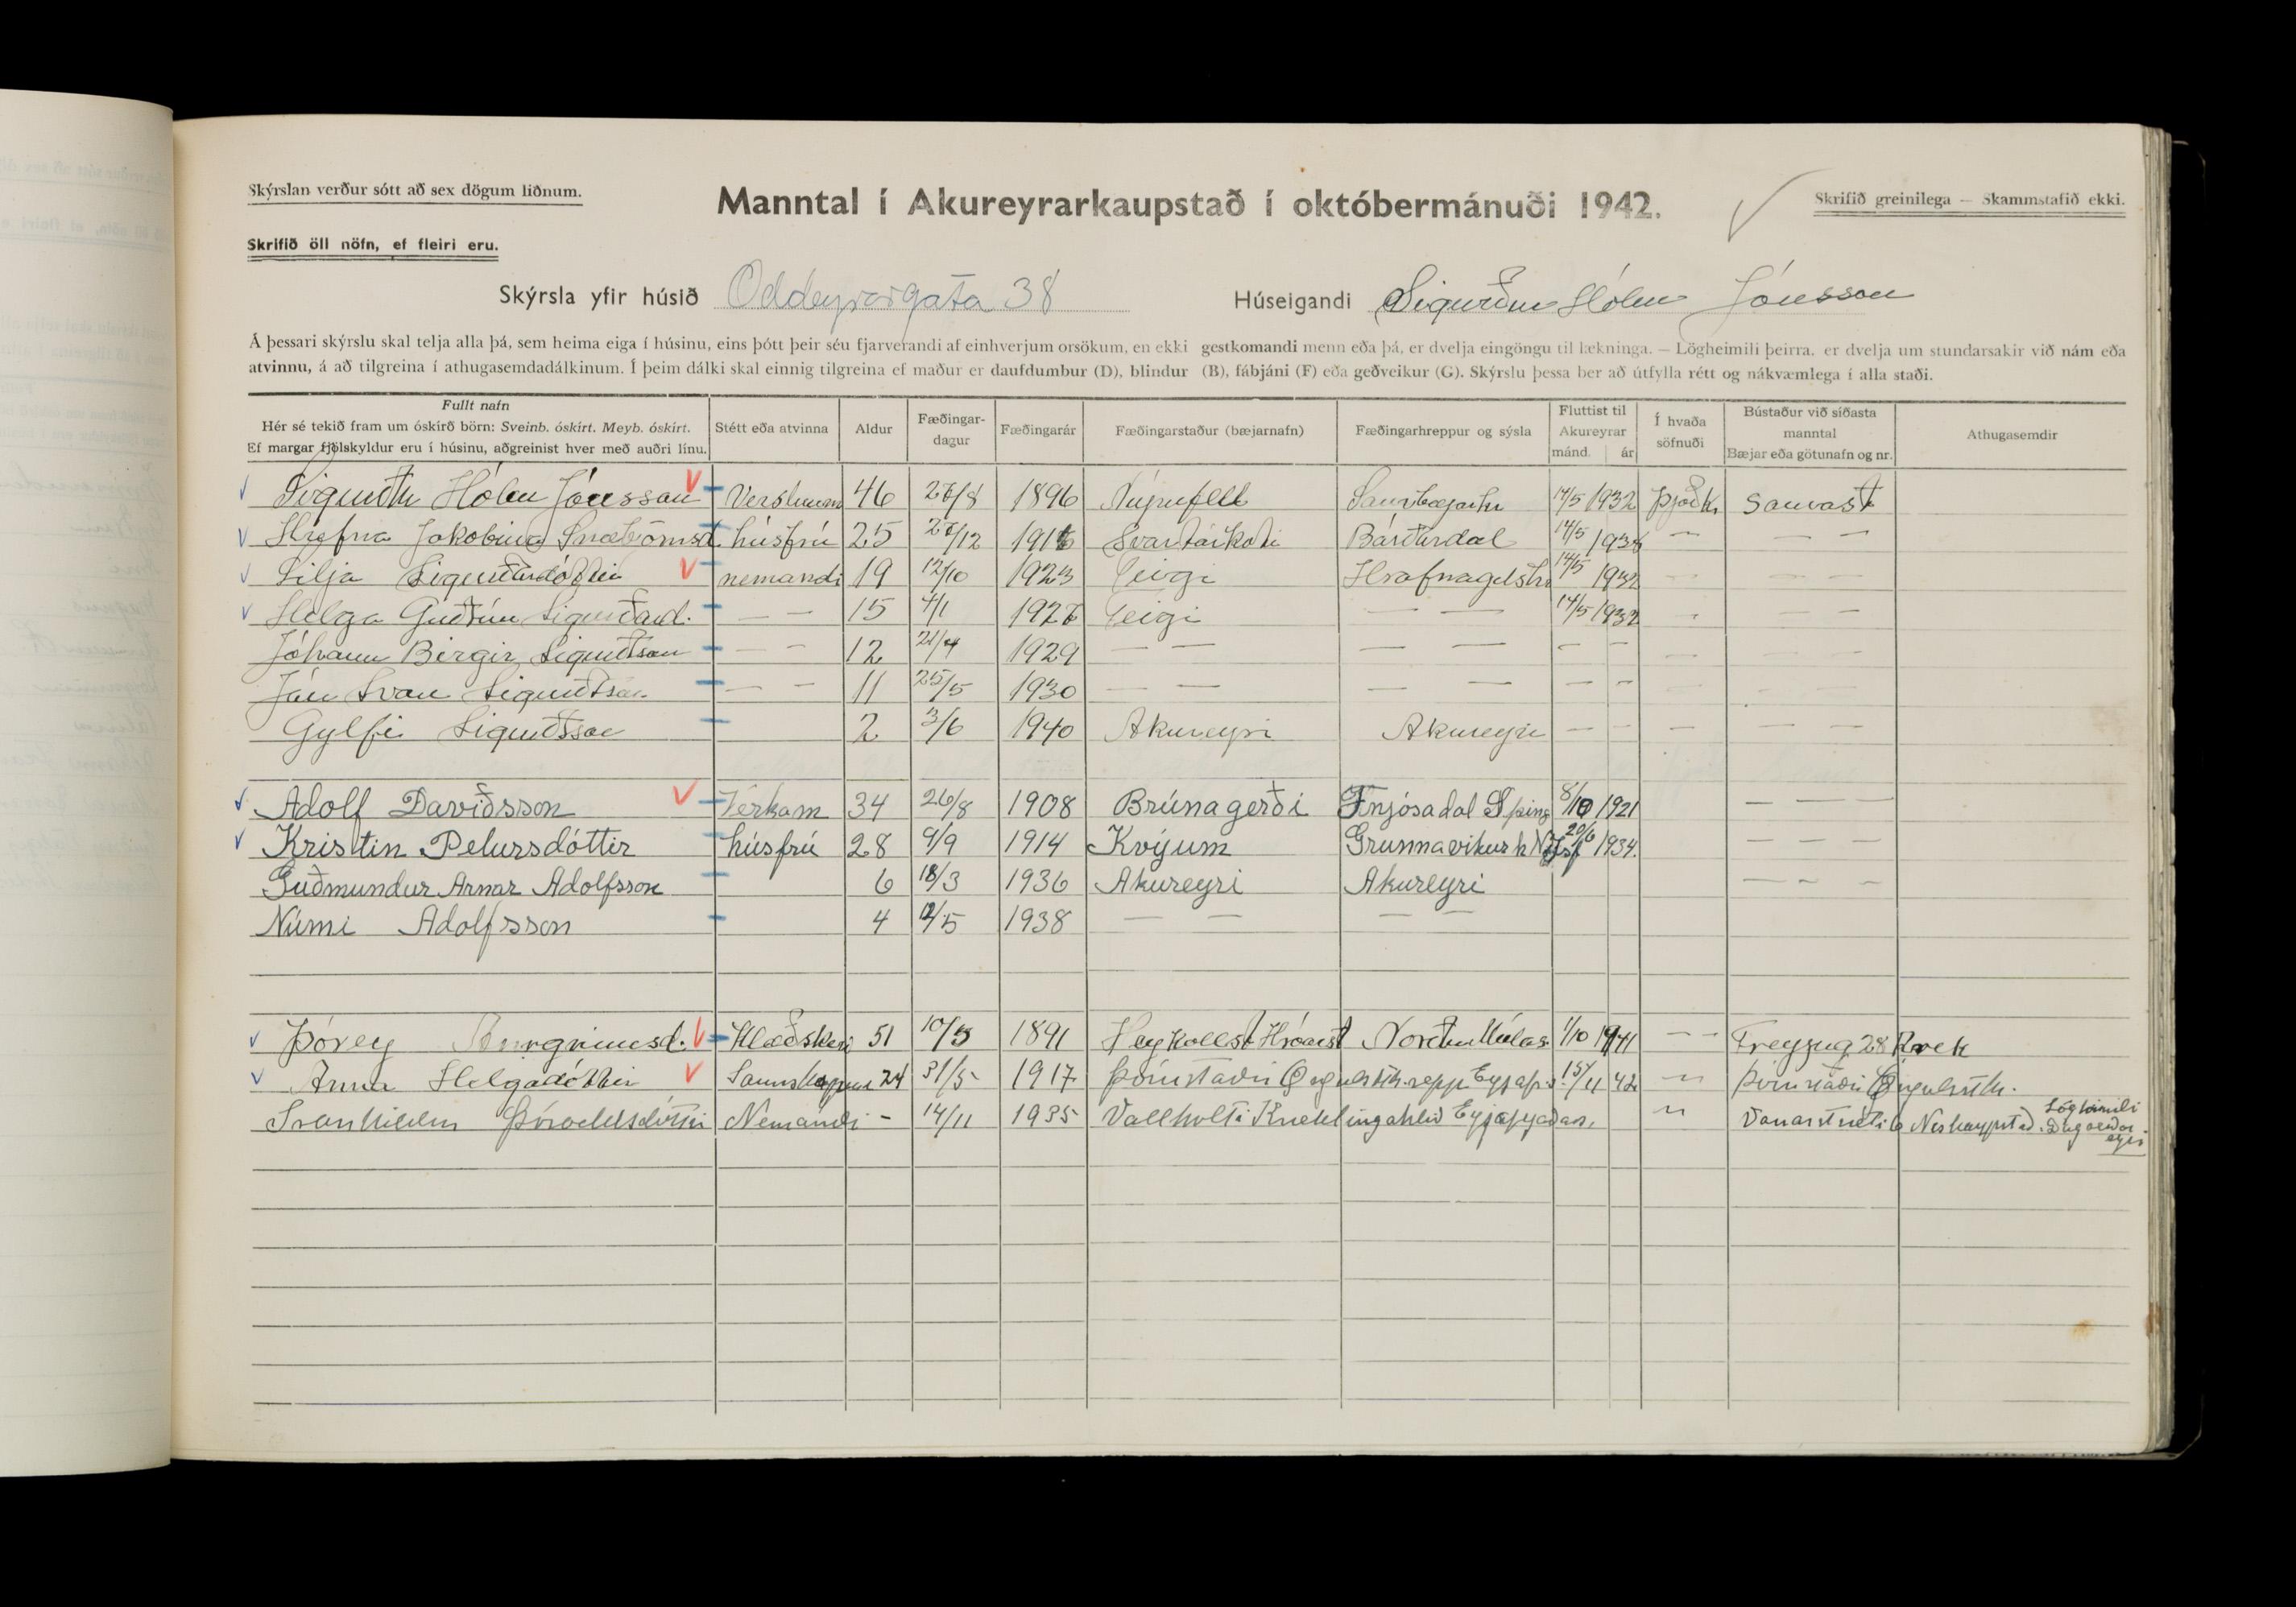 Skýrslan verður sótt að sex dögum liðnum.
Manntal í Akureyrarkaupstað í októbermánuði 1942.
Skrifið greinilega — Skammstafið ekki.
Skrifið öll nöfn, ef fleiri eru.
Skýrsla yfir húsið Oddeyrargata 38 Húseigandi Sigurður Hólm Jónsson
Á þessari skýrslu skal telja alla þá, sem heima eiga í húsinu, eins þótt þeir séu fjarverandi af einhverjum orsökum, en ekki gestkomandi menn eða þá, er dvelja eingöngu til lækninga. — Lögheimili þeirra, er dvelja um stundarsakir við nám eða
atvinnu, á að tilgreina í athugasemdadálkinum. Í þeim dálki skal einnig tilgreina ef maður er daufdumbur (D), blindur (B), fábjáni (F) eða geðveikur (G). Skýrslu þessa ber að útfylla rétt og nákvæmlega í alla staði.
Fullt nafn
Hér sé tekið fram um óskírð börn: Sveinb. óskírt. Meyb. óskírt.
Ef margar fjölskyldur eru í húsinu, aðgreinist hver með auðri línu.
Stétt eða atvinna
Aldur
Fæðingar-
dagur
Fæðingarár
Fæðingarstaður (bæjarnafn)
Fæðingarhreppur og sýsla
Fluttist til
Akureyrar
mánd. ár
Í hvaða
söfnuði
Bústaður við síðasta
manntal
Bæjar eða götunafn og nr.
Athugasemdir
Sigurður Hólm Jónsson 46 27/8 1896 Núpufell 14/5 1932 Þjóðk. Samast.
Hrefna Jakobína Snæbjörnsd. húsfrú 25 27/12 1916 Svartárkoti Bárðardal 14/5 1938 — — —
Lilja Sigurðardóttir nemandi 19 12/10 1923 Teigi Hrafnagilshr. 14/5 1932 — — —
Helga Guðrún Sigurðard. — — 15 4/1 1927 Teigi — — 14/5 1932 — — —
Jóhann Birgir Sigurðsson — — 12 21/4 1929 — — — — — — — — —
Jón Svan Sigurðsson — — 11 25/5 1930 — — — — — — — — —
Gylfi Sigurðsson 2 3/6 1940 Akureyri Akureyri — — — — —
Adolf Davíðsson Verkam 34 26/8 1908 Brúnagerði Fnjósadal S þing 8/10 1921 — — —
Kristín Petursdóttir húsfrú 28 9/9 1914 Kvíjum Grunnavikur h N Ísf 20/6 1934. — — —
Guðmundur Arnar Adolfsson 6 18/3 1936 Akureyri Akureyri — — —
Númi Adolfsson 4 12/5 1938 — — — —
Þórey 51 10/5 1891 Norður Múlas. 1/10 1941 — — Freyjug 28 Rvek
Anna Helgadóttir 24 31/5 1917 Þórustaðir 15/11 42 — Þórustaðir
Svanhildur Þóroddsdóttir Nemandi - 14/11 1935 Vallholti Eyjafjaðar. — 6 Neskaupstað. Lögheimili
eyri